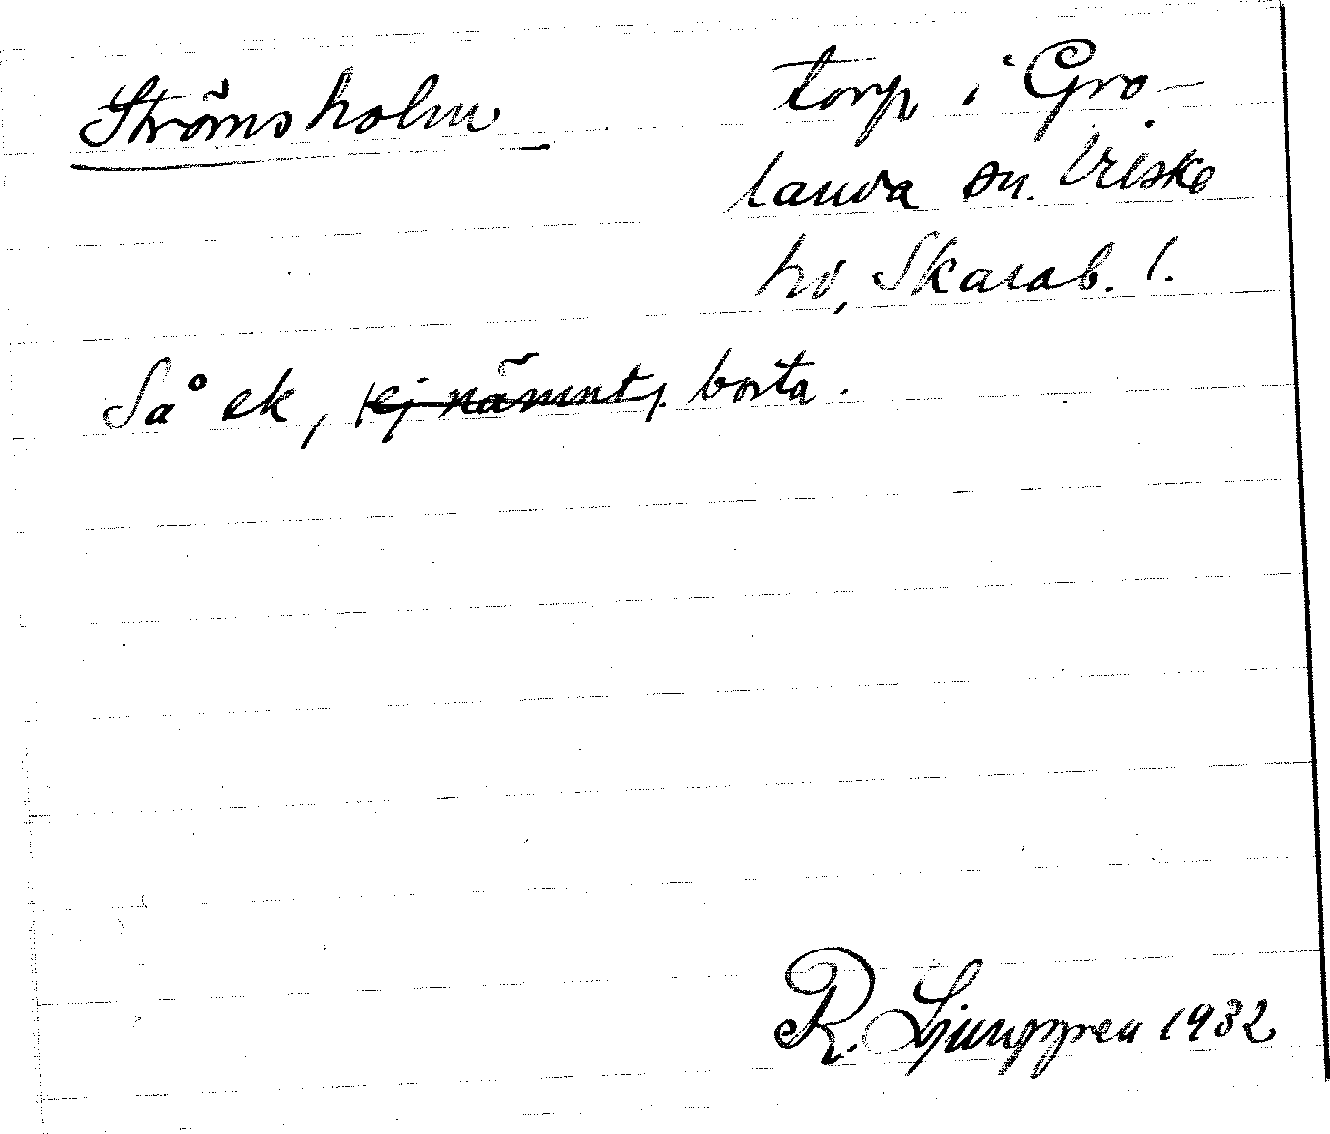 Strömsholm
torp i Gro-
landa sn. Vilske
hd, Skarab. l.
Så ek, ej nämnt, borta.
R. Ljunggren 1932